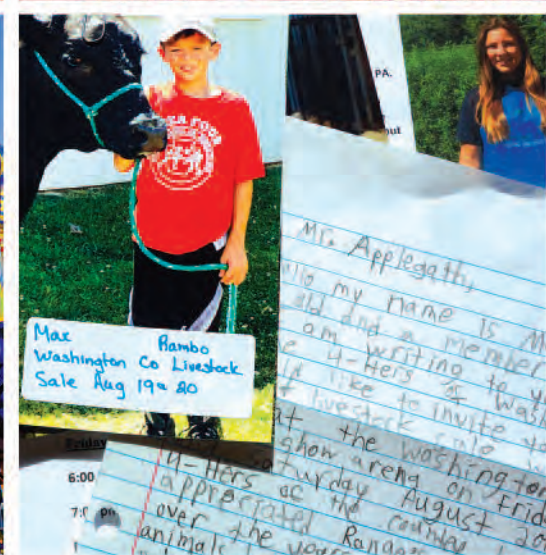 PA.
Max Rambo
Washington Co Livestock
Sale Aug 19 a 20
Mr. Applegath,
my name is M
old and a member
am writing to y
4-Hers of Wash
like to invite to
livestock sale w
at the washington
show arena on Frid
Saturday August 20
4-Hers of the county
appreciated
over the years
animals
Friday
6:00
pm